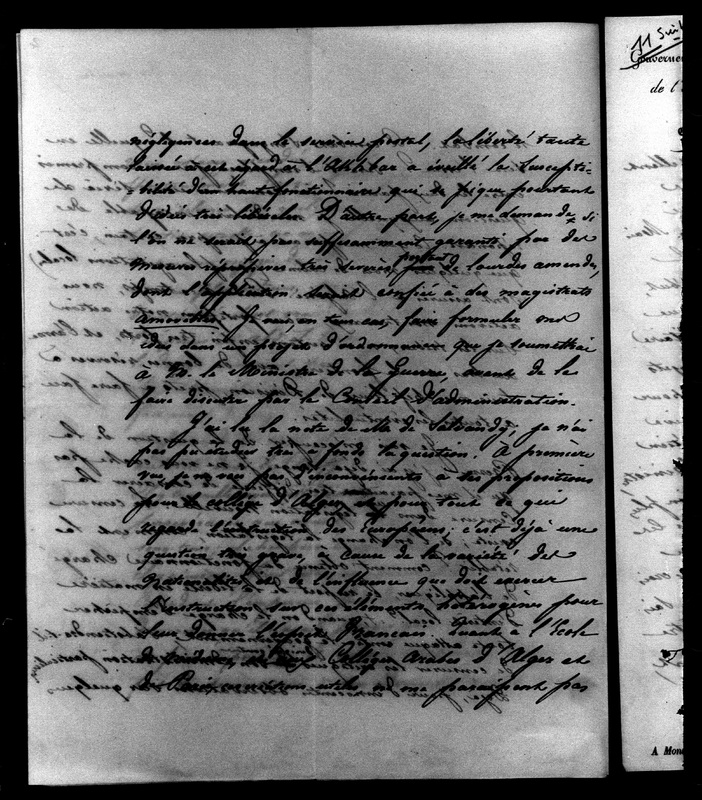 négligences dans le service postal, la liberté toute
laissée à cet égard à l'Akhbar a éveillé la suscepti-
-bilité d'un haut fonctionnaire qui se pique pourtant
d'idées très libérales. D'autre part, je me demande si
l'on ne serait pas suffisamment garanti par des
mesures répressives très sévères, portant de lourdes amendes,
dont l'application serait confiée à des magistrats
amovibles. Je vais, en tous cas, faire formuler mes
idées dans un projet d'ordonnance que je soumettrai
à M. le Ministre de la Guerre, avant de le
faire discuter par le Conseil d'administration.
J'ai lu la note de M. de Salvandy, je n'ai
pas pu étudier très à fonds la question. À première
vue, je ne vois pas d'inconvénients à ses propositions
pour le collège d'Alger, et pour tout ce qui
regarde l'instruction des Européens; c'est déjà une
question très grave, à cause de la variété des
nationalités et de l'influence que doit exercer
l'instruction sur ces éléments hétérogènes pour
leur donner l'esprit Français. Quant à l'École
Collèges Arabes d'Alger et
de Paris, ne me paraissent pas
11 Juin
Gouverneme
de l'
A Mon